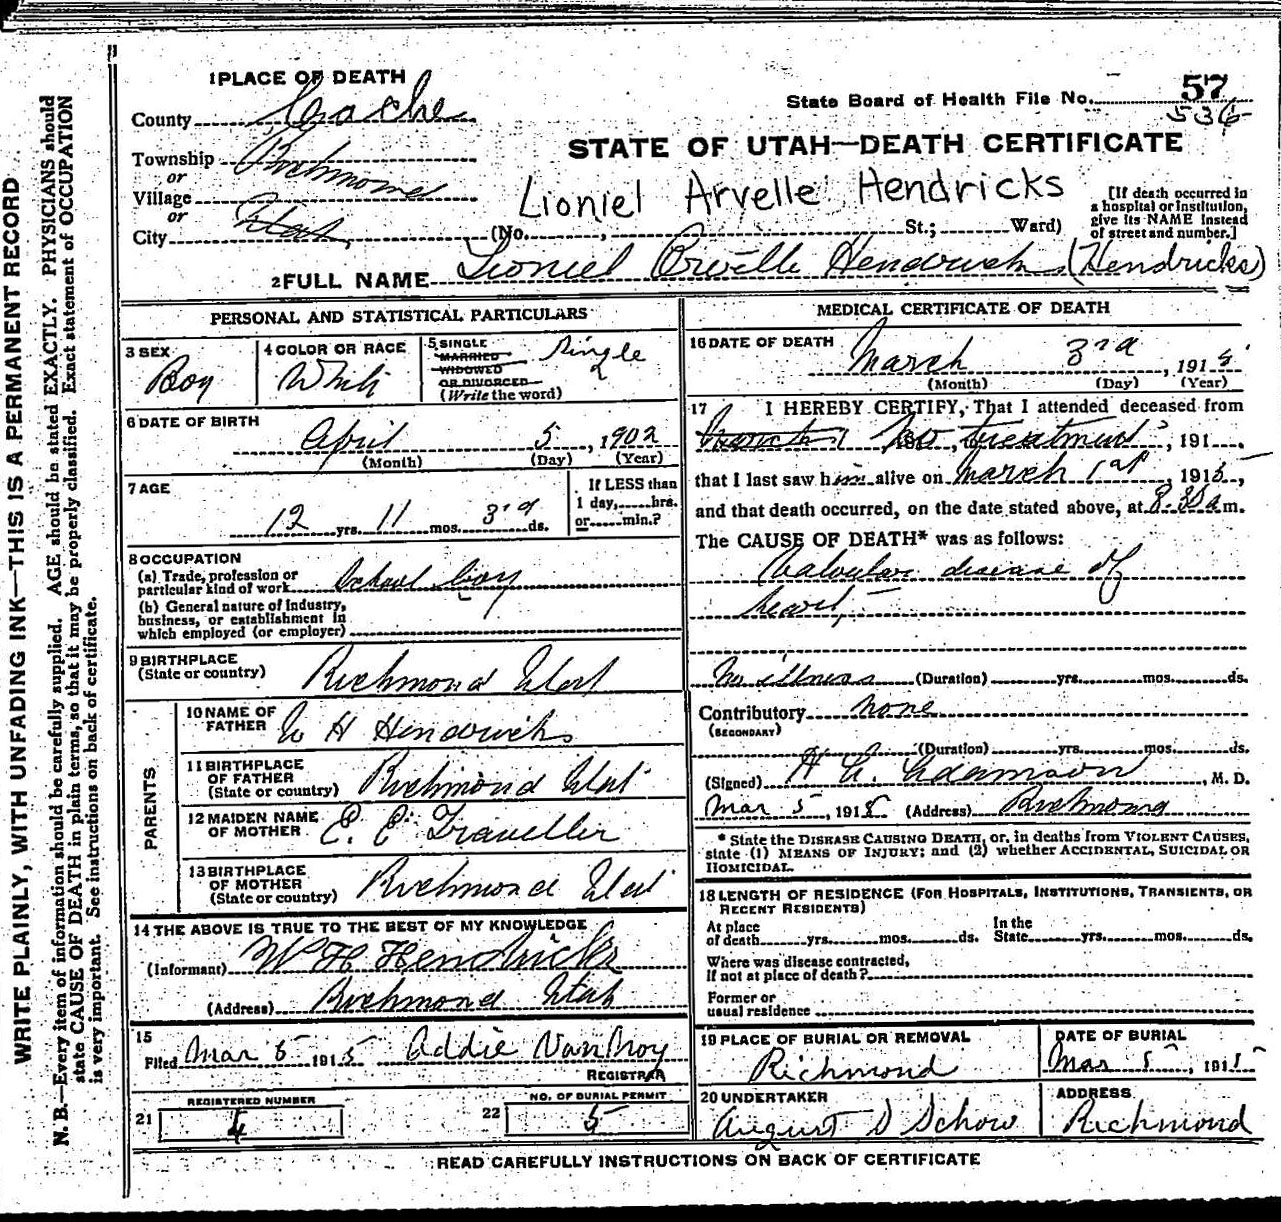 1 PLACE OF DEATH
County Cache
Township Richmond
or
Village
or Utah
City
State Board of Health File No. 57
536
STATE OF UTAH—DEATH CERTIFICATE
Lioniel Arvelle Hendricks
(No. , St.; Ward)
[If death occurred in
a hospital or institution,
give its NAME instead
of street and number.]
2 FULL NAME Lioniel Orvelle Hendrick (Hendricks)
PERSONAL AND STATISTICAL PARTICULARS
3 SEX
Boy
4 COLOR OR RACE
White
5 SINGLE
MARRIED
WIDOWED
OR DIVORCED
(Write the word)
Single
6 DATE OF BIRTH
April 5, 1902
(Month) (Day) (Year)
7 AGE
12 yrs. 11 mos. 3rd ds.
If LESS than
1 day, hrs.
or min.?
8 OCCUPATION
(a) Trade, profession or
particular kind of work School boy
(b) General nature of industry,
business, or establishment in
which employed (or employer)
9 BIRTHPLACE
(State or country) Richmond Utah
PARENTS
10 NAME OF
FATHER W H Hendricks
11 BIRTHPLACE
OF FATHER
(State or country) Richmond Utah
12 MAIDEN NAME
OF MOTHER E. E. Traveller
13 BIRTHPLACE
OF MOTHER
(State or country) Richmond Utah
14 THE ABOVE IS TRUE TO THE BEST OF MY KNOWLEDGE
(Informant) W H Hendricks
(Address) Richmond Utah
15
Filed Mar 5 1915 Addie Van Noy
REGISTRAR
21 REGISTERED NUMBER
4
22 NO. OF BURIAL PERMIT
5
MEDICAL CERTIFICATE OF DEATH
16 DATE OF DEATH
March 3rd, 1915
(Month) (Day) (Year)
17 I HEREBY CERTIFY, That I attended deceased from
191 no treatment, 191
that I last saw him alive on March 1st, 1915,
and that death occurred, on the date stated above, at 8.30 a m.
The CAUSE OF DEATH* was as follows:
Valvular disease of
heart,
No illness (Duration) yrs. mos. ds.
Contributory none
(SECONDARY)
(Duration) yrs. mos. ds.
(Signed) Adamson, M. D.
Mar 5, 1915 (Address) Richmond
* State the DISEASE CAUSING DEATH, or, in deaths from VIOLENT CAUSES,
state (1) MEANS OF INJURY; and (2) whether ACCIDENTAL, SUICIDAL OR
HOMICIDAL.
18 LENGTH OF RESIDENCE (FOR HOSPITALS, INSTITUTIONS, TRANSIENTS, OR
RECENT RESIDENTS)
At place
of death yrs. mos. ds.
In the
State yrs. mos. ds.
Where was disease contracted,
if not at place of death?
Former or
usual residence
19 PLACE OF BURIAL OR REMOVAL
Richmond
DATE OF BURIAL
Mar 5, 1915
20 UNDERTAKER
August D Schow
ADDRESS
Richmond
READ CAREFULLY INSTRUCTIONS ON BACK OF CERTIFICATE
WRITE PLAINLY, WITH UNFADING INK—THIS IS A PERMANENT RECORD
N. B.—Every item of information should be carefully supplied. AGE should be stated EXACTLY. PHYSICIANS should
state CAUSE OF DEATH in plain terms, so that it may be properly classified. Exact statement of OCCUPATION
is very important. See instructions on back of certificate.